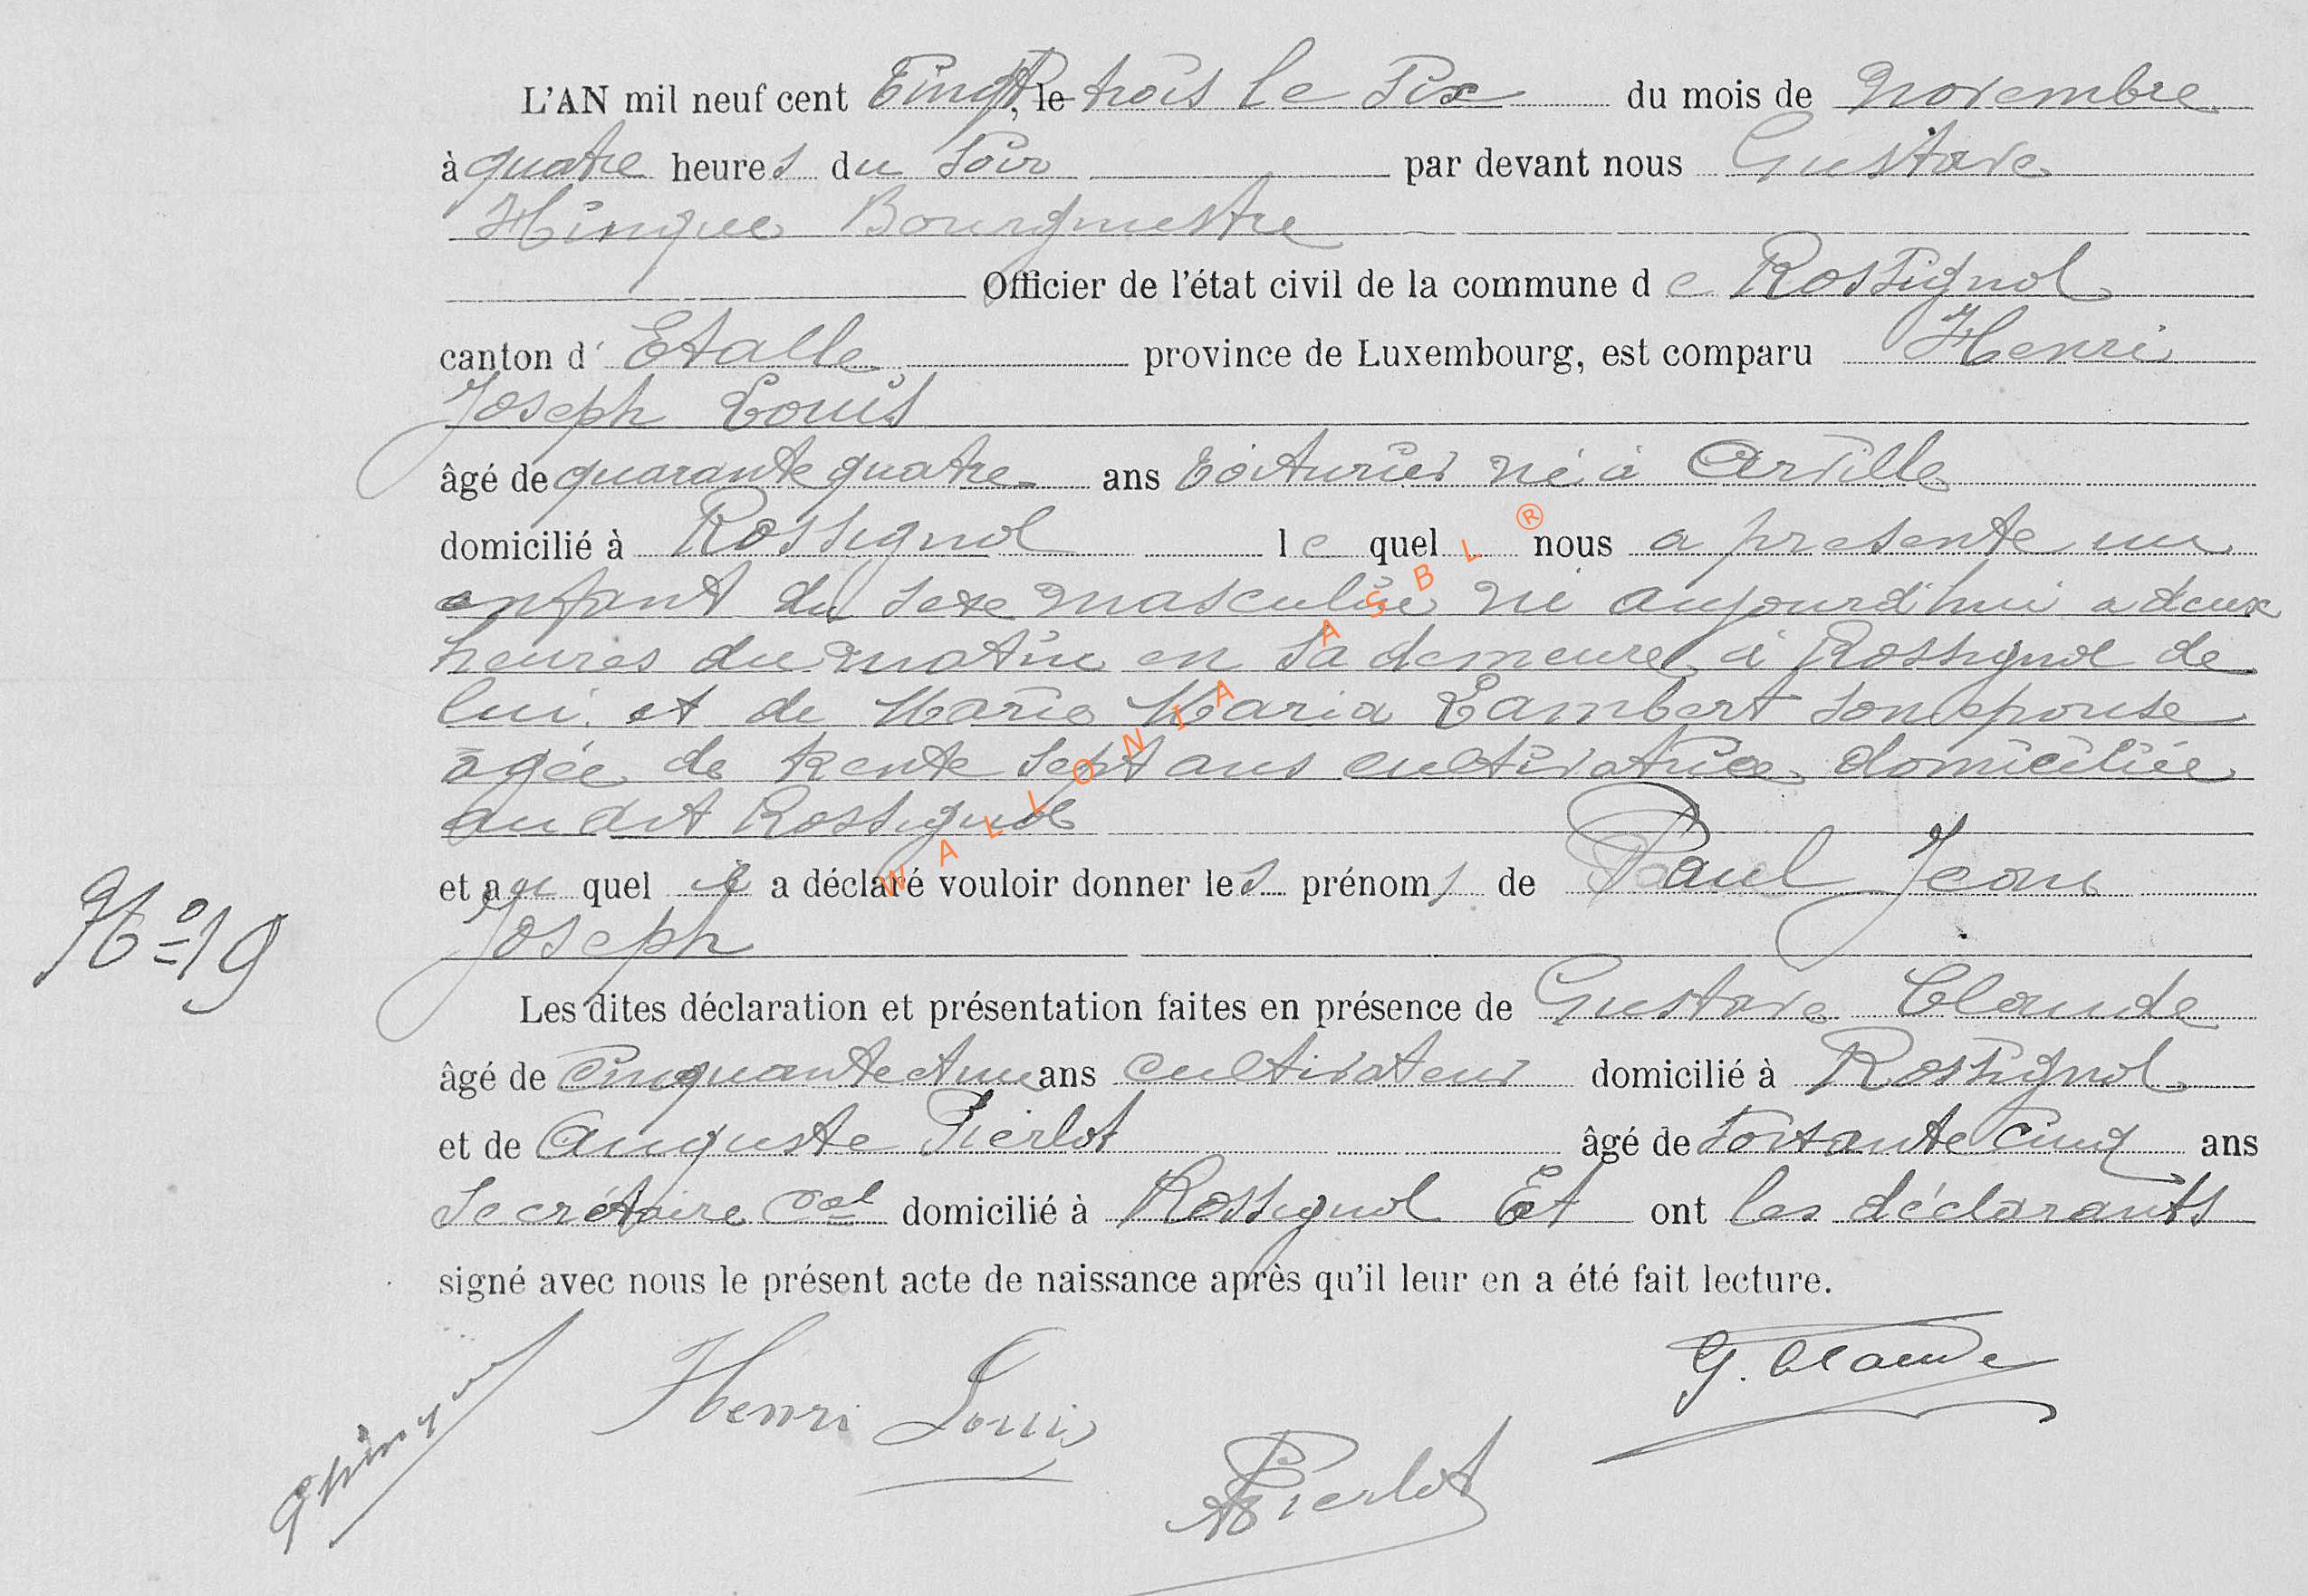 L'AN mil neuf cent Vingt, le trois le Six du mois de Novembre
à quatre heures du Soir par devant nous Gustave
Hinque Bourgmestre
Officier de l'état civil de la commune de Rossignol
canton d'Etalle province de Luxembourg, est comparu Henri
Joseph Louis
âgé de quarante quatre ans voiturier né à Arville
domicilié à Rossignol le quel nous a presente un
enfant du sexe masculin né aujourd'hui a deux
heures du matin en sa demeure à Rossignol de
lui et de Marie Maria Lambert son epouse
agée de trente sept ans cultivatrice domiciliée
au dit Rossignol
et au quel il a déclaré vouloir donner les prénoms de Paul Jean
N° 19
Joseph
Les dites déclaration et présentation faites en présence de Gustave Claude
âgé de Cinquante et un ans cultivateur domicilié à Rossignol
et de Auguste Pierlot âgé de soixante Cinq ans
Secrétaire Cal domicilié à Rossignol Et ont les déclarants
signé avec nous le présent acte de naissance après qu'il leur en a été fait lecture.
G. Claude
Henri Louis
GHinque
APierlot
WALLONIA ASBL ®